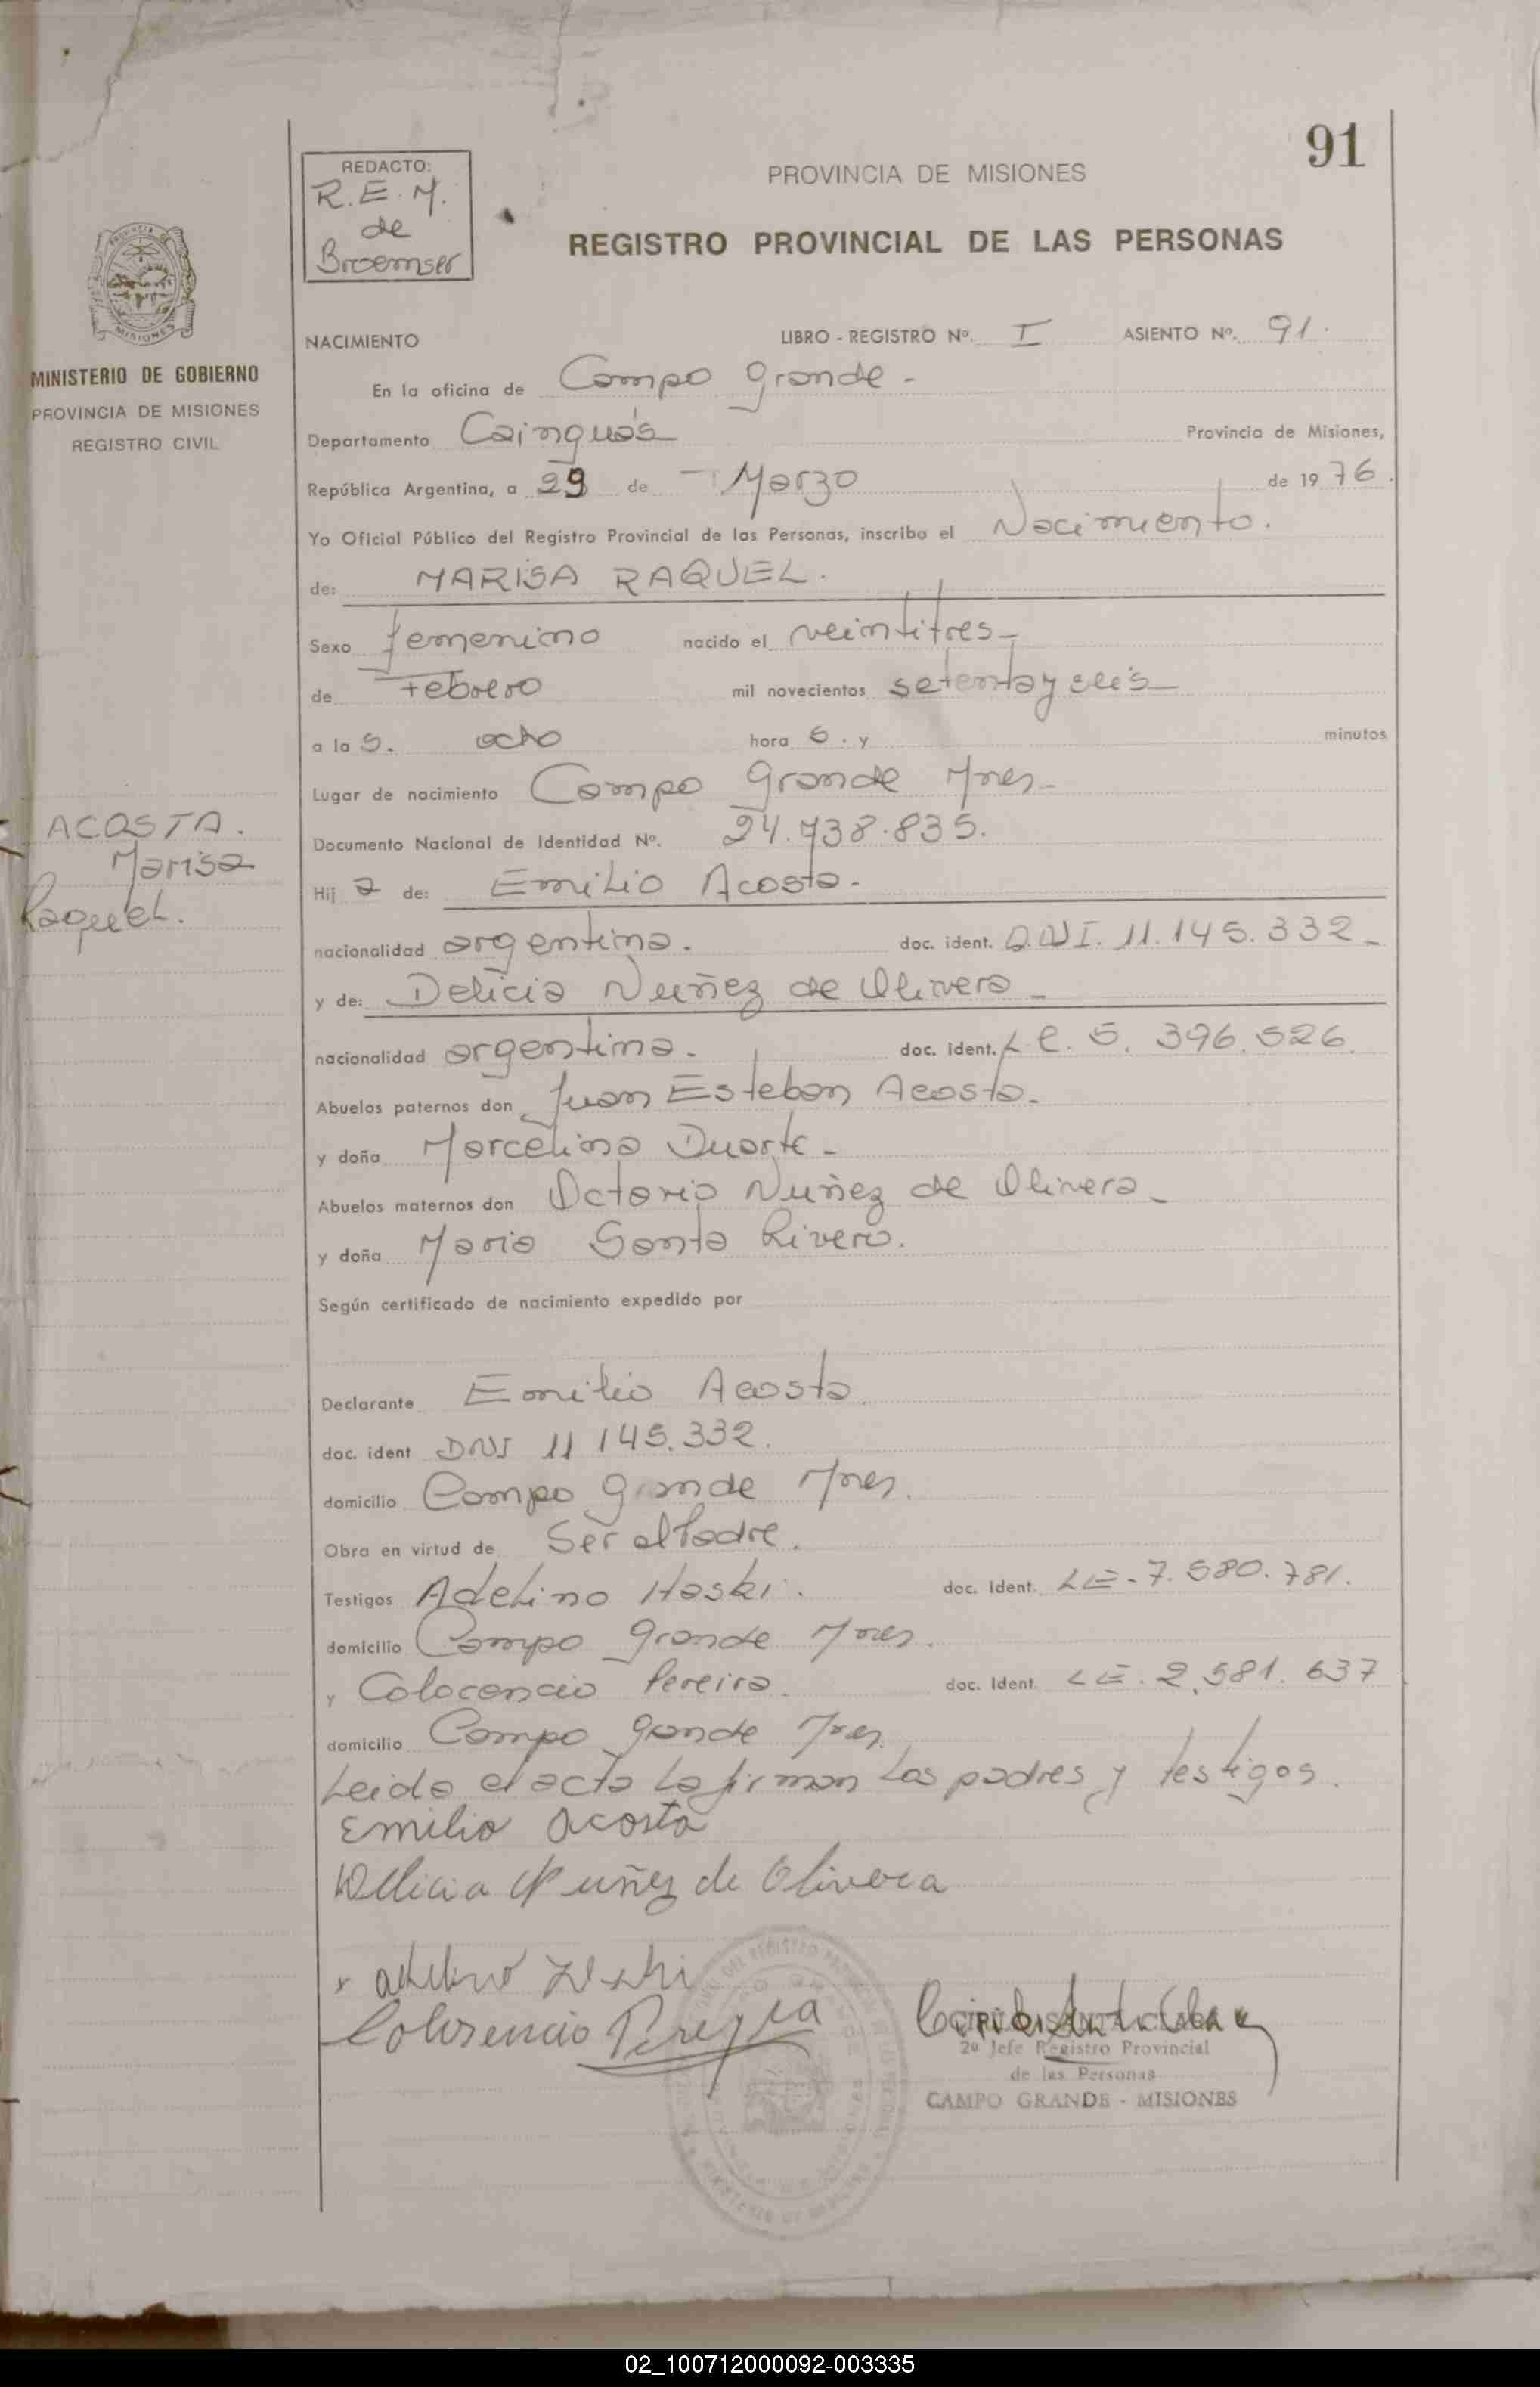 91
REDACTO:
R.E.M.
de
Broemser
PROVINCIA DE MISIONES
REGISTRO PROVINCIAL DE LAS PERSONAS
MINISTERIO DE GOBIERNO
PROVINCIA DE MISIONES
REGISTRO CIVIL
NACIMIENTO LIBRO - REGISTRO Nº. I ASIENTO Nº. 91.
En la oficina de Campo Grande -
Departamento Cainguás Provincia de Misiones,
República Argentina, a 29 de - Marzo de 1976.
Yo Oficial Público del Registro Provincial de las Personas, inscribo el Nacimiento.
de: MARISA RAQUEL.
Sexo femenino nacido el veintitres-
de Febrero mil novecientos setenta y seis-
a la s. ocho hora s. y minutos
Lugar de nacimiento Campo Grande Mnes-
Documento Nacional de Identidad Nº. 24.738.835.
ACOSTA.
Marisa
Raquel.
Hij a de: Emilio Acosta-
nacionalidad argentina. doc. ident. D.N.I. 11.145.332-
y de: Delicia Nuñez de Olivera-
nacionalidad argentina. doc. ident. L.C. 5.396.526.
Abuelos paternos don Juan Esteban Acosta-
y doña Marcelina Duarte-
Abuelos maternos don Octavio Nuñez de Olivera-
y doña Maria Santa Rivero.
Según certificado de nacimiento expedido por
Declarante Emilio Acosta
doc. ident DNI 11 145.332.
domicilio Campo Grande Mnes.
Obra en virtud de Ser el Padre.
Testigos Adelino Haski. doc. Ident. LE-7.580.781.
domicilio Campo Grande Mnes.
y Colocencio Pereira. doc. Ident. LE.2.581.637
domicilio Campo Grande Mnes.
Leida el acta la firman los padres y testigos.
Emilio Acosta
Delicia Nuñez de Olivera
2º Jefe Registro Provincial
de las Personas
CAMPO GRANDE - MISIONES
02_100712000092-003335